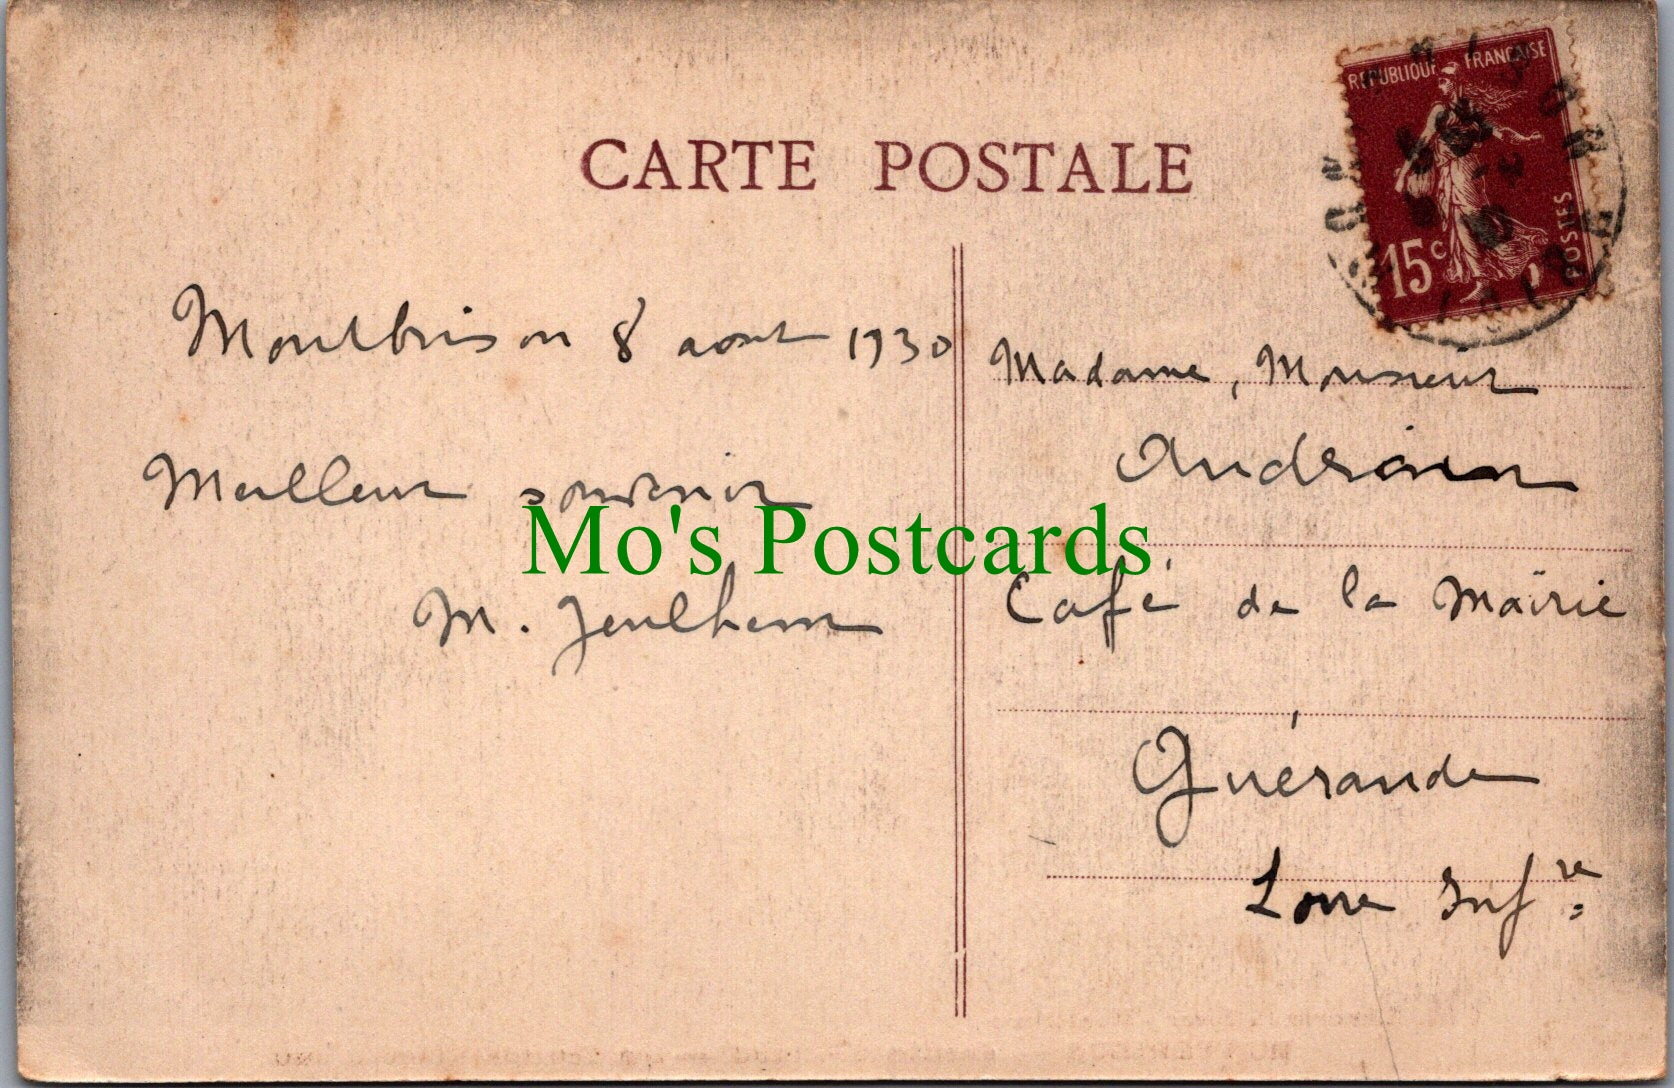 CARTE POSTALE
REPUBLIQUE FRANÇAISE
15c
POSTES
Montbrison 8 aout 1930
Meilleur souvenir
M.
Madame, Monsieur
Andrain
Café de la Mairie
Guérande
Loire Infre
Mo's Postcards